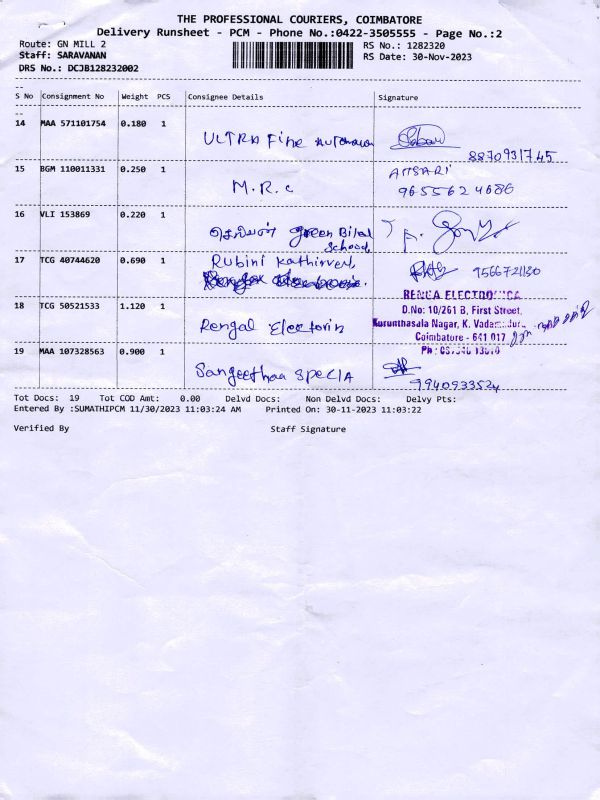 THE PROFESSIONAL COURIERS, COIMBATORE
Delivery Runsheet - PCM - Phone No.:0422-3505555 - Page No.:2
Route: GN MILL 2
RS No.: 1282320
Staff: SARAVANAN
RS Date: 30-Nov-2023
DRS No.: DCJB128232002
S No Consignment No Weight PCS Consignee Details Signature
14 MAA 571101754 0.180 1
ULTRA Fine
8870931745
15 BGM 110011331 0.250 1
M.R.C
ANSARI
9655624686
16 VLI 153869 0.220 1
green
School
17 TCG 40744620 0.690 1
Rubini Kathirvel,
9566721180
18 TCG 50521533 1.120 1
Rengal
D.No: 10/261 B, First Street,
Kurunthasala Nagar, K.
Coimbatore - 641 017
Ph:
19 MAA 107328563 0.900 1
Sangeethaa SpeciA
9940933524
Tot Docs: 19 Tot COD Amt: 0.00 Delvd Docs: Non Delvd Docs: Delvy Pts:
Entered By :SUMATHIPCM 11/30/2023 11:03:24 AM Printed On: 30-11-2023 11:03:22
Verified By Staff Signature